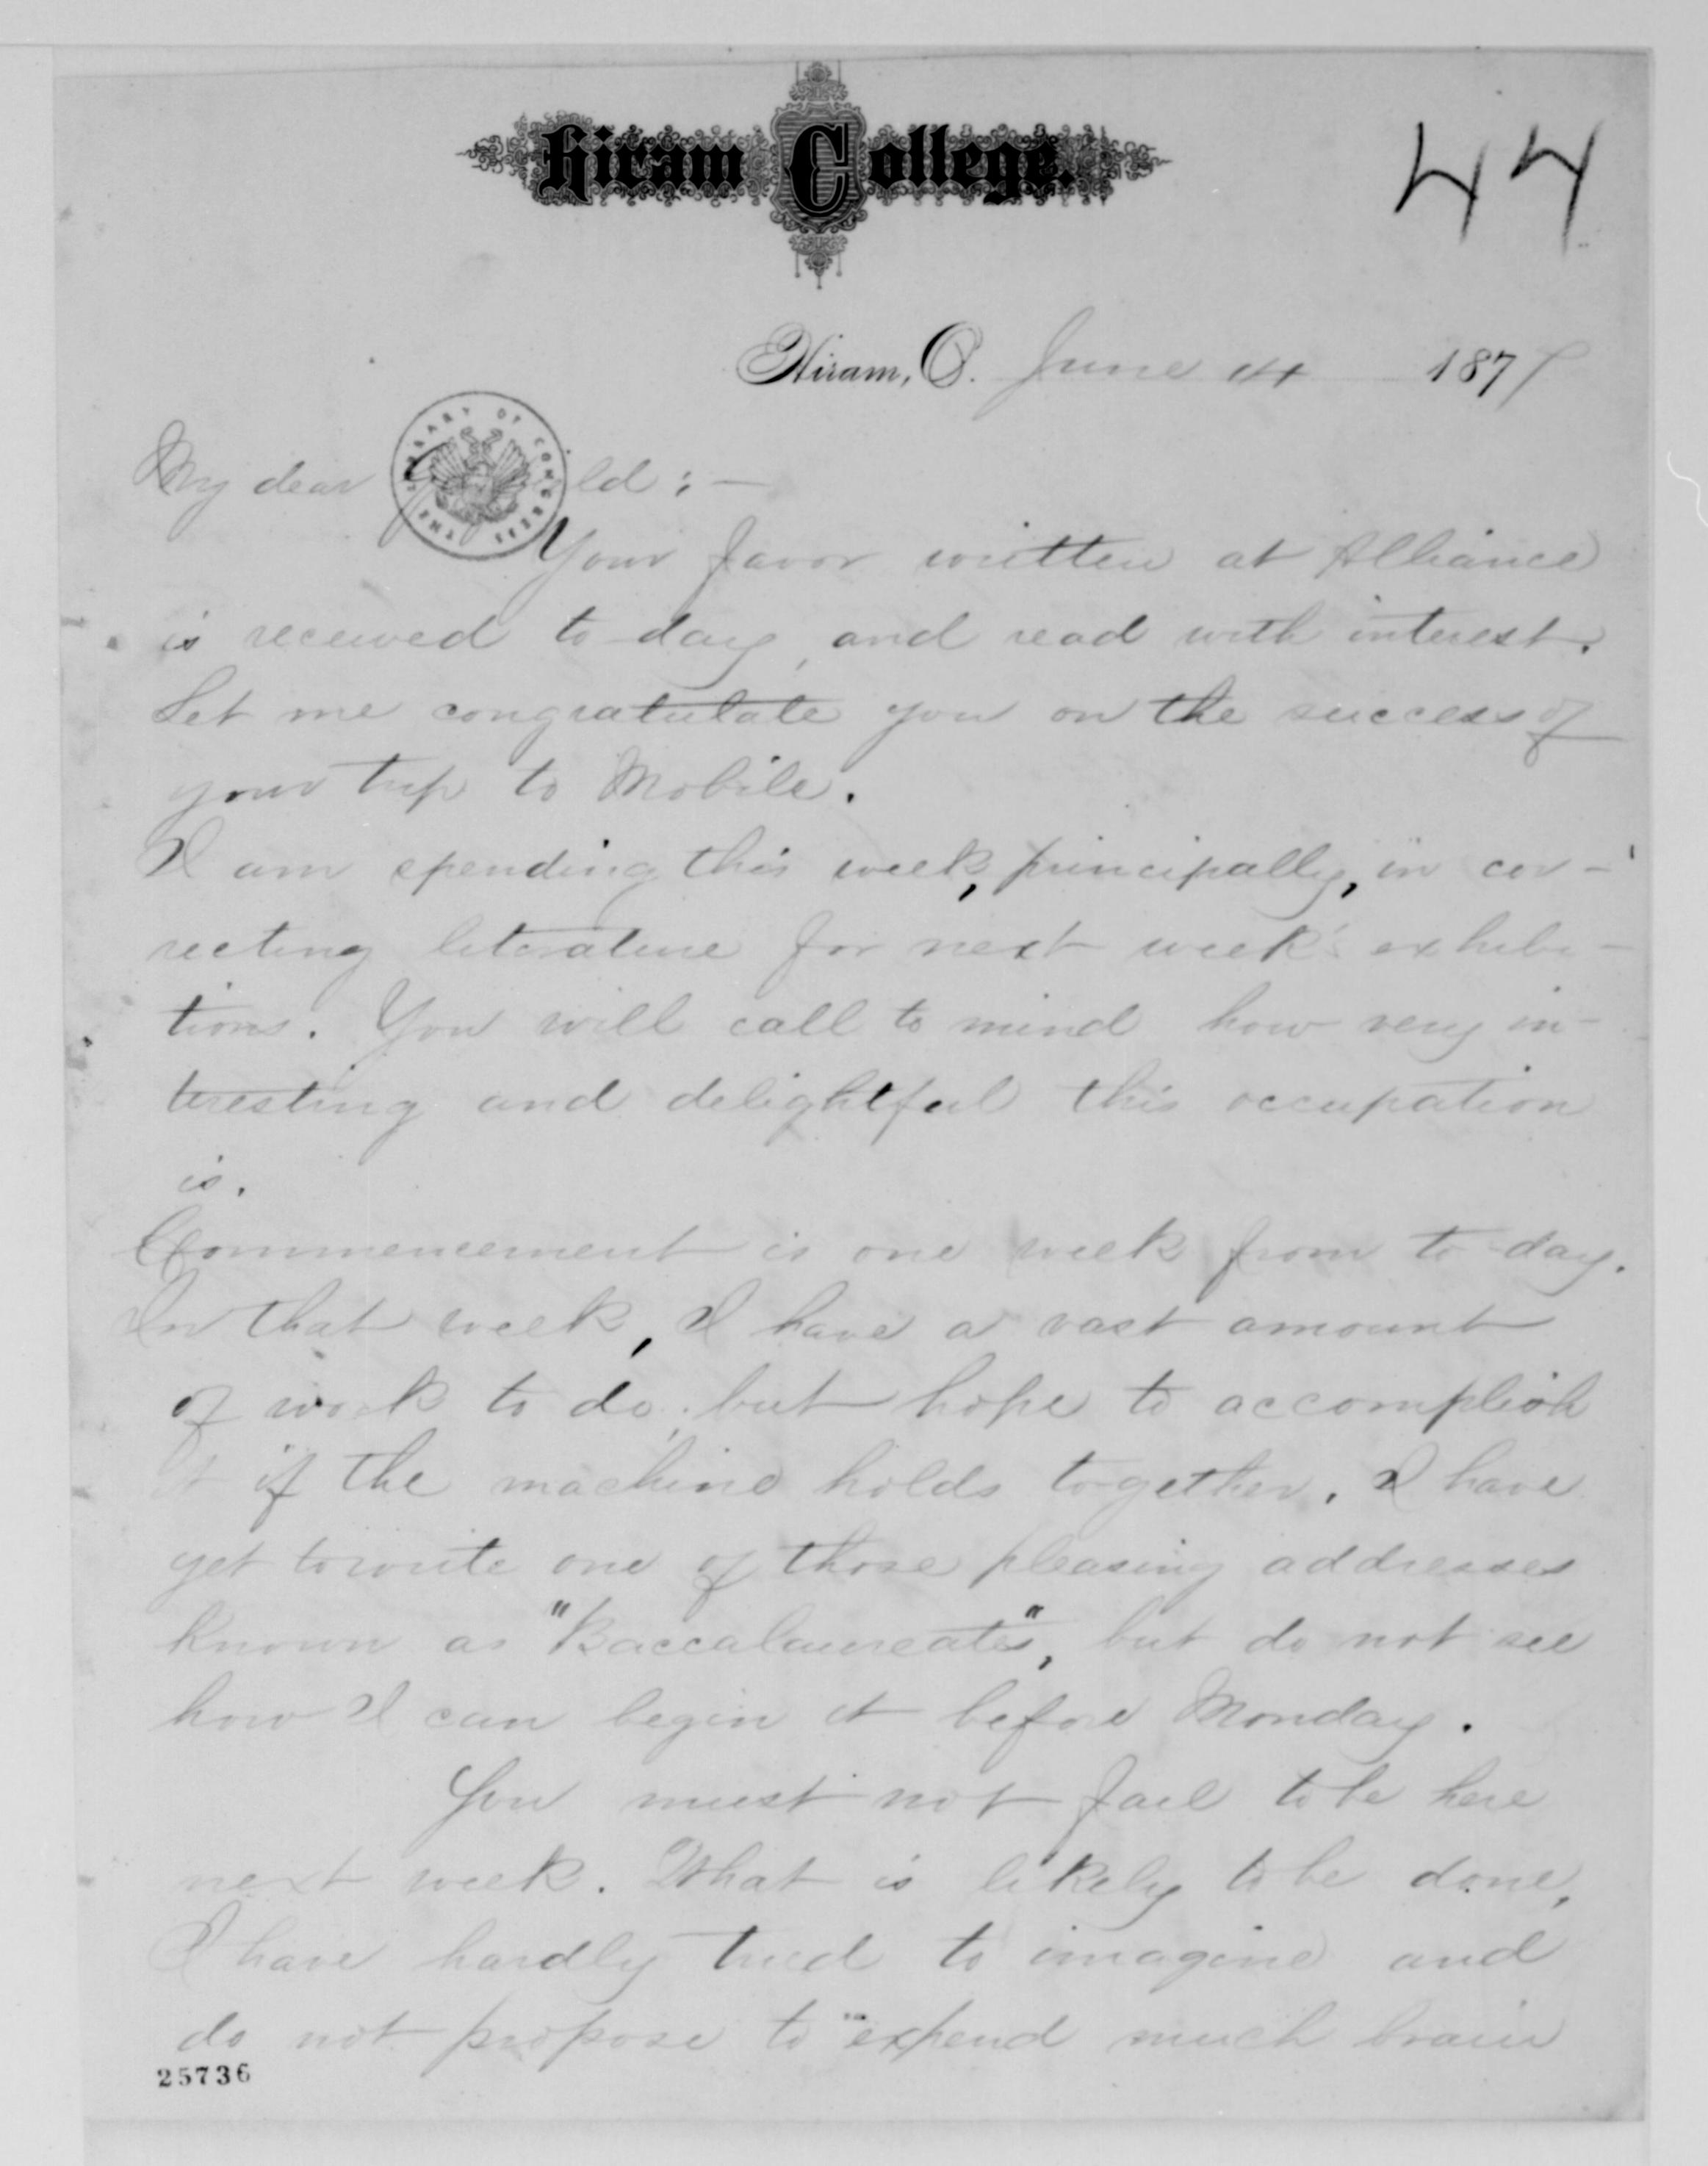 Hiram College.
44
Hiram, O. June 14 1877
My dear G ld : —
THE LIBRARY OF CONGRESS
Your favor written at Alliance
is received to-day, and read with interest.
Let me congratulate you on the success of
your trip to Mobile.
I am spending this week, principally, in cor-
recting literature for next week's exhibi-
tions. You will call to mind how very in-
teresting and delightful this occupation
is.
Commencement is one week from to-day.
In that week, I have a vast amount
of work to do; but hope to accomplish
it if the machine holds together. I have
yet to write one of those pleasing addresses
known as "Baccalaureates", but do not see
how I can begin it before Monday.
You must not fail to be here
next week. What is likely to be done,
I have hardly tried to imagine and
do not propose to expend much brain
25736